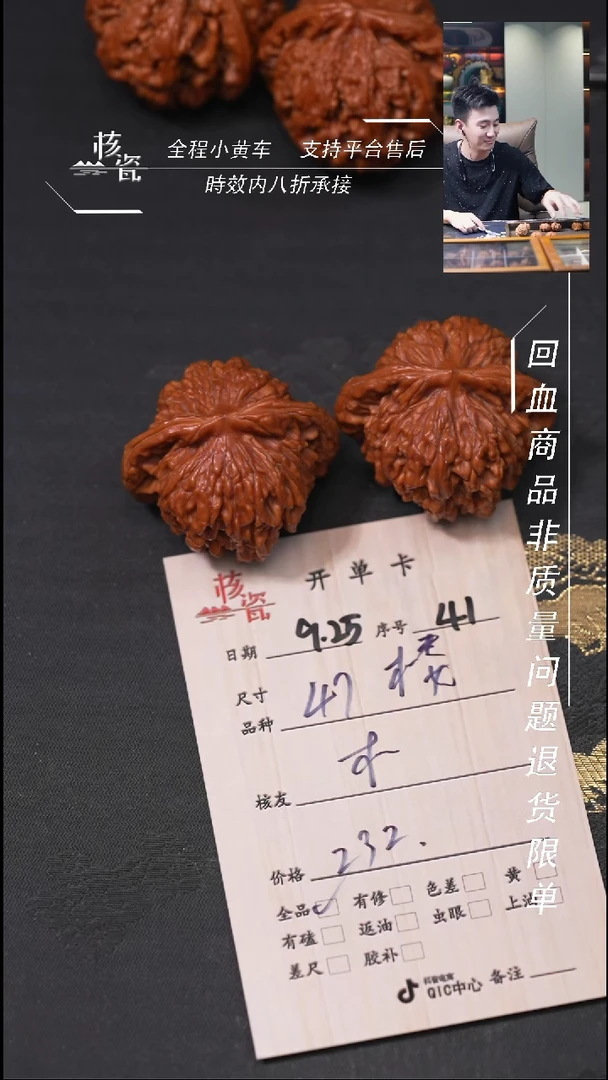 核瓷
全程小黄车 支持平台售后
時效内八折承接
回血商品非质量问题退货限单
核瓷
开单卡
日期 9.25 序号 41
尺寸 47
品种
核友
价格 232.
全品 有修 色差 黄
有磕 返油 虫眼 上油
差尺 胶补
抖音电商
QIC中心 备注